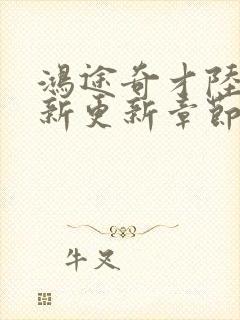 鴻途奇才陸
新更新章節
牛叉